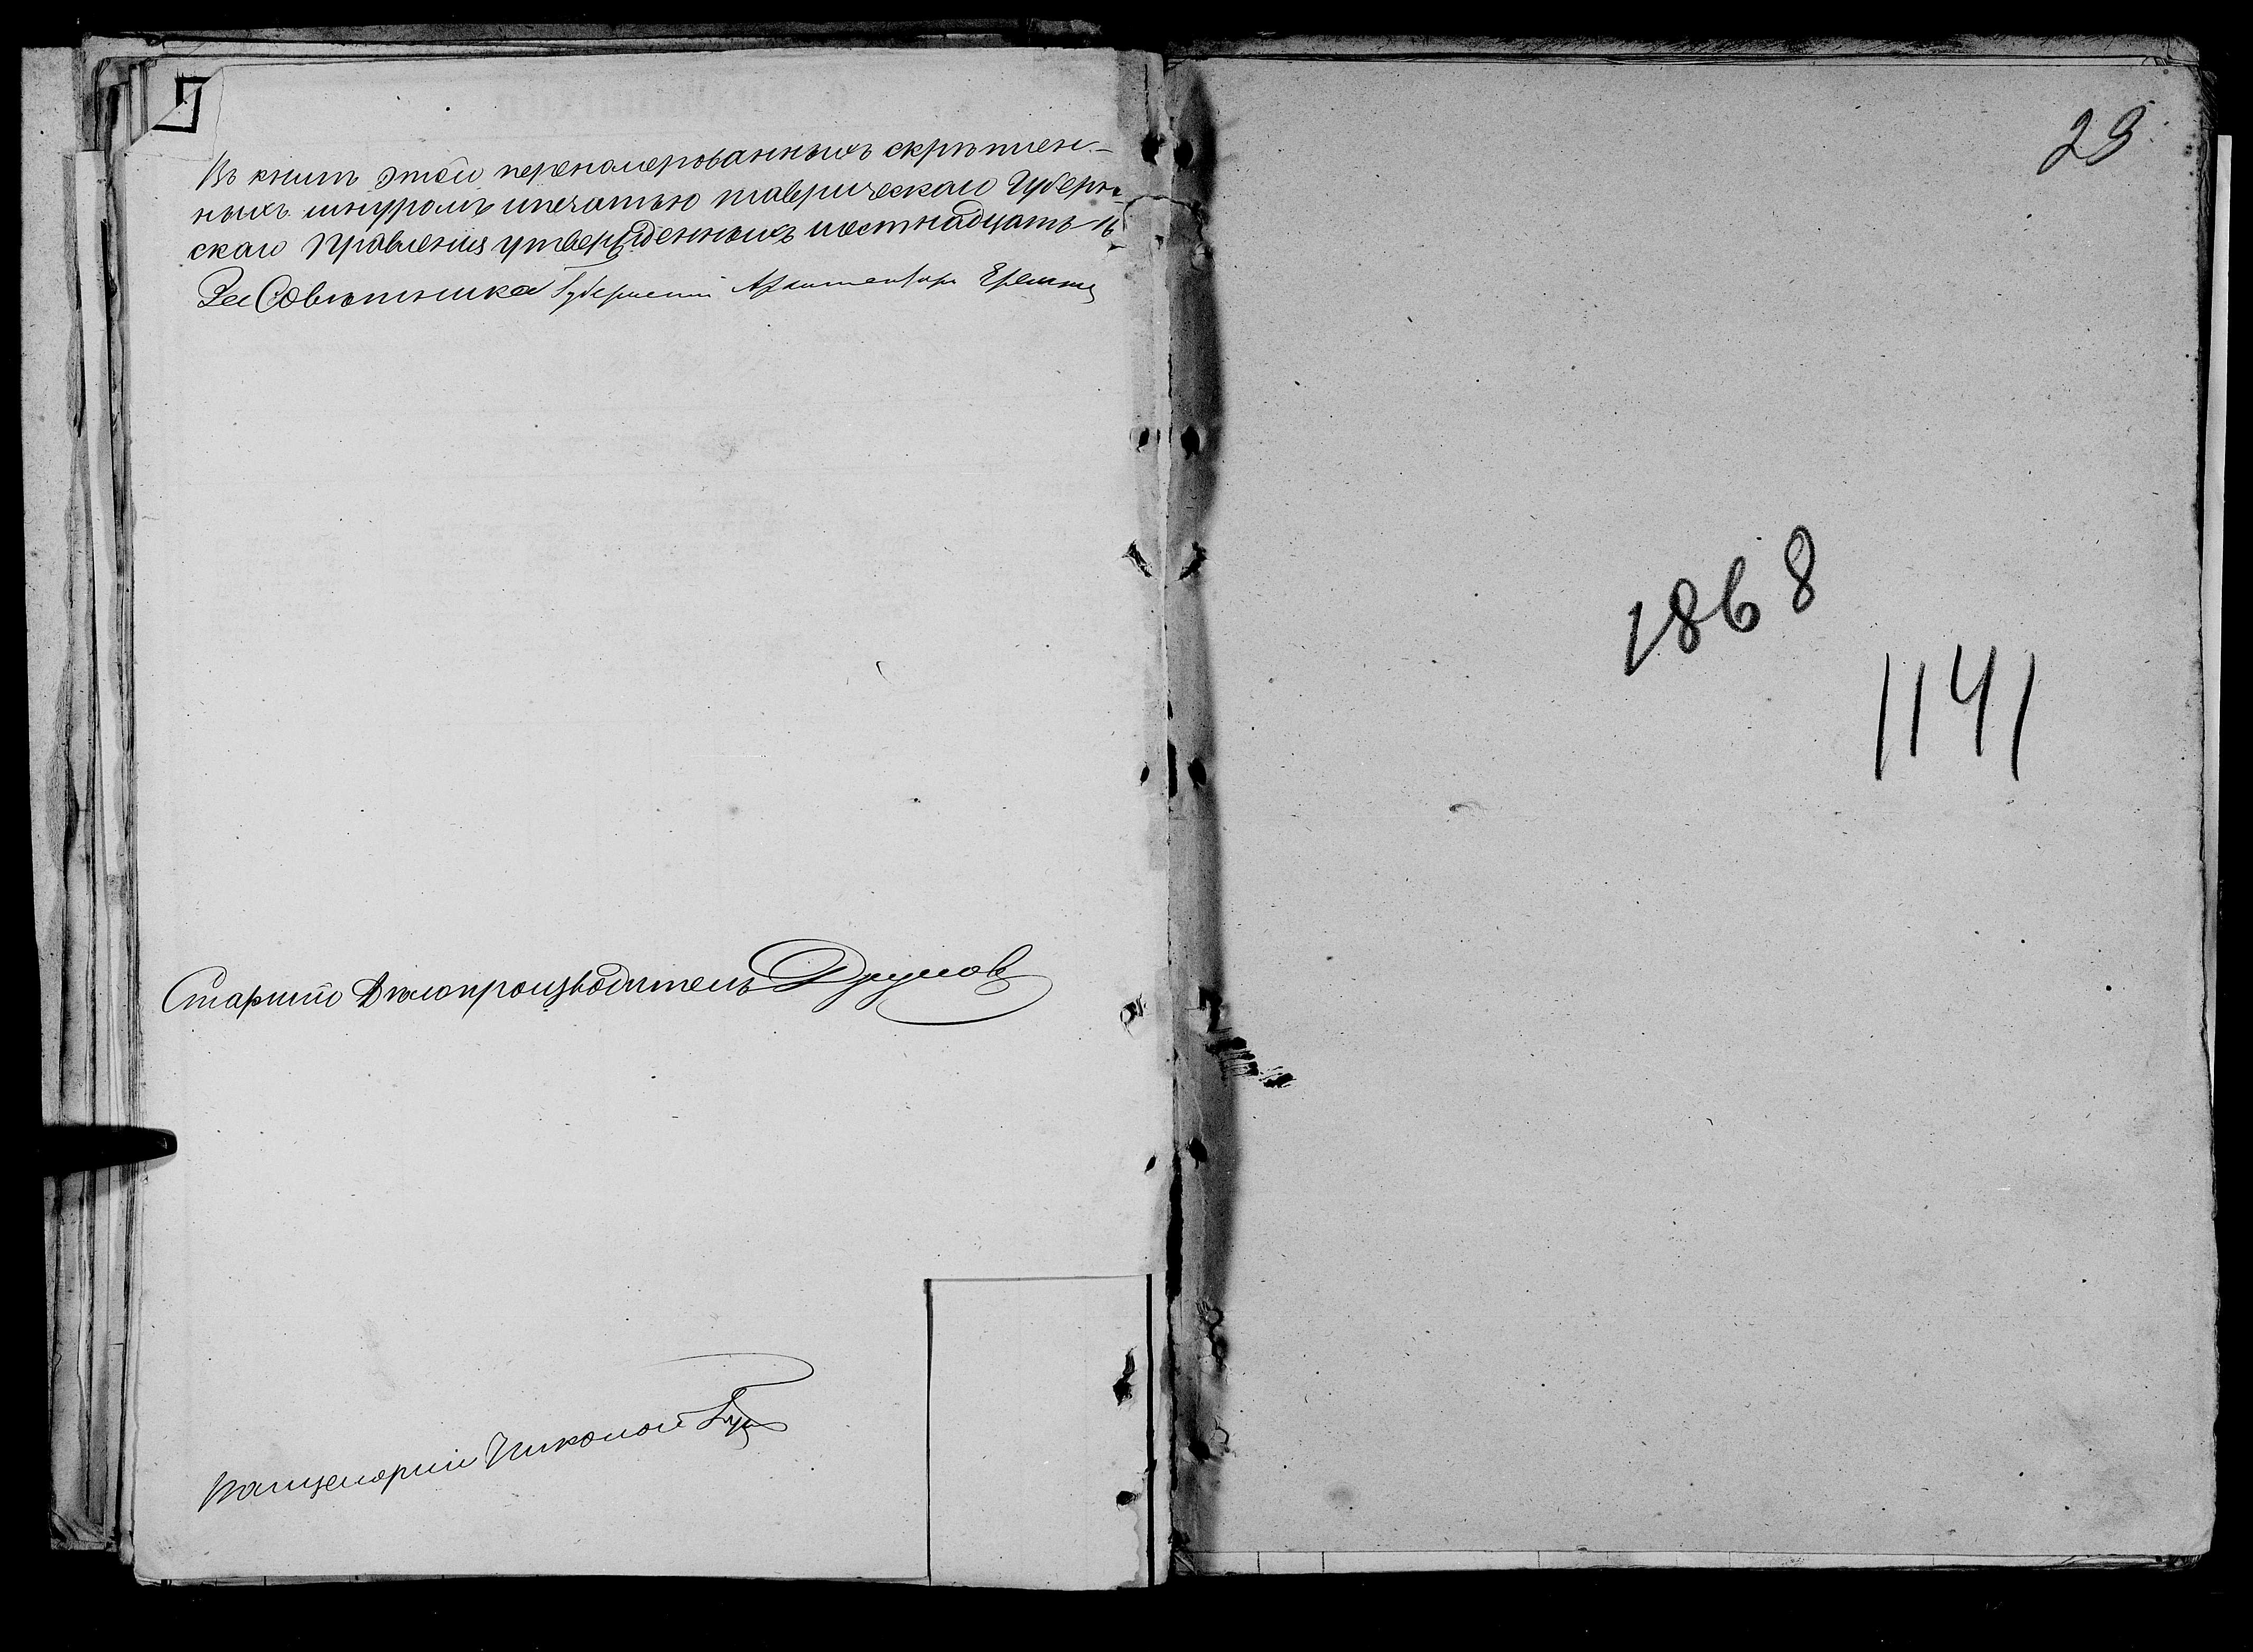 Въ книгѣ этой перенамерованныхъ скрѣплен-
ныхъ шнуромъ и печатью таврическаго Губерн-
скаго Правленія утвержденныхъ шестнадцать 16
За Совѣтника Губернскій Архитекторъ
Старшій Дѣлопроизводитель
Канцелярій
29
1868
1141